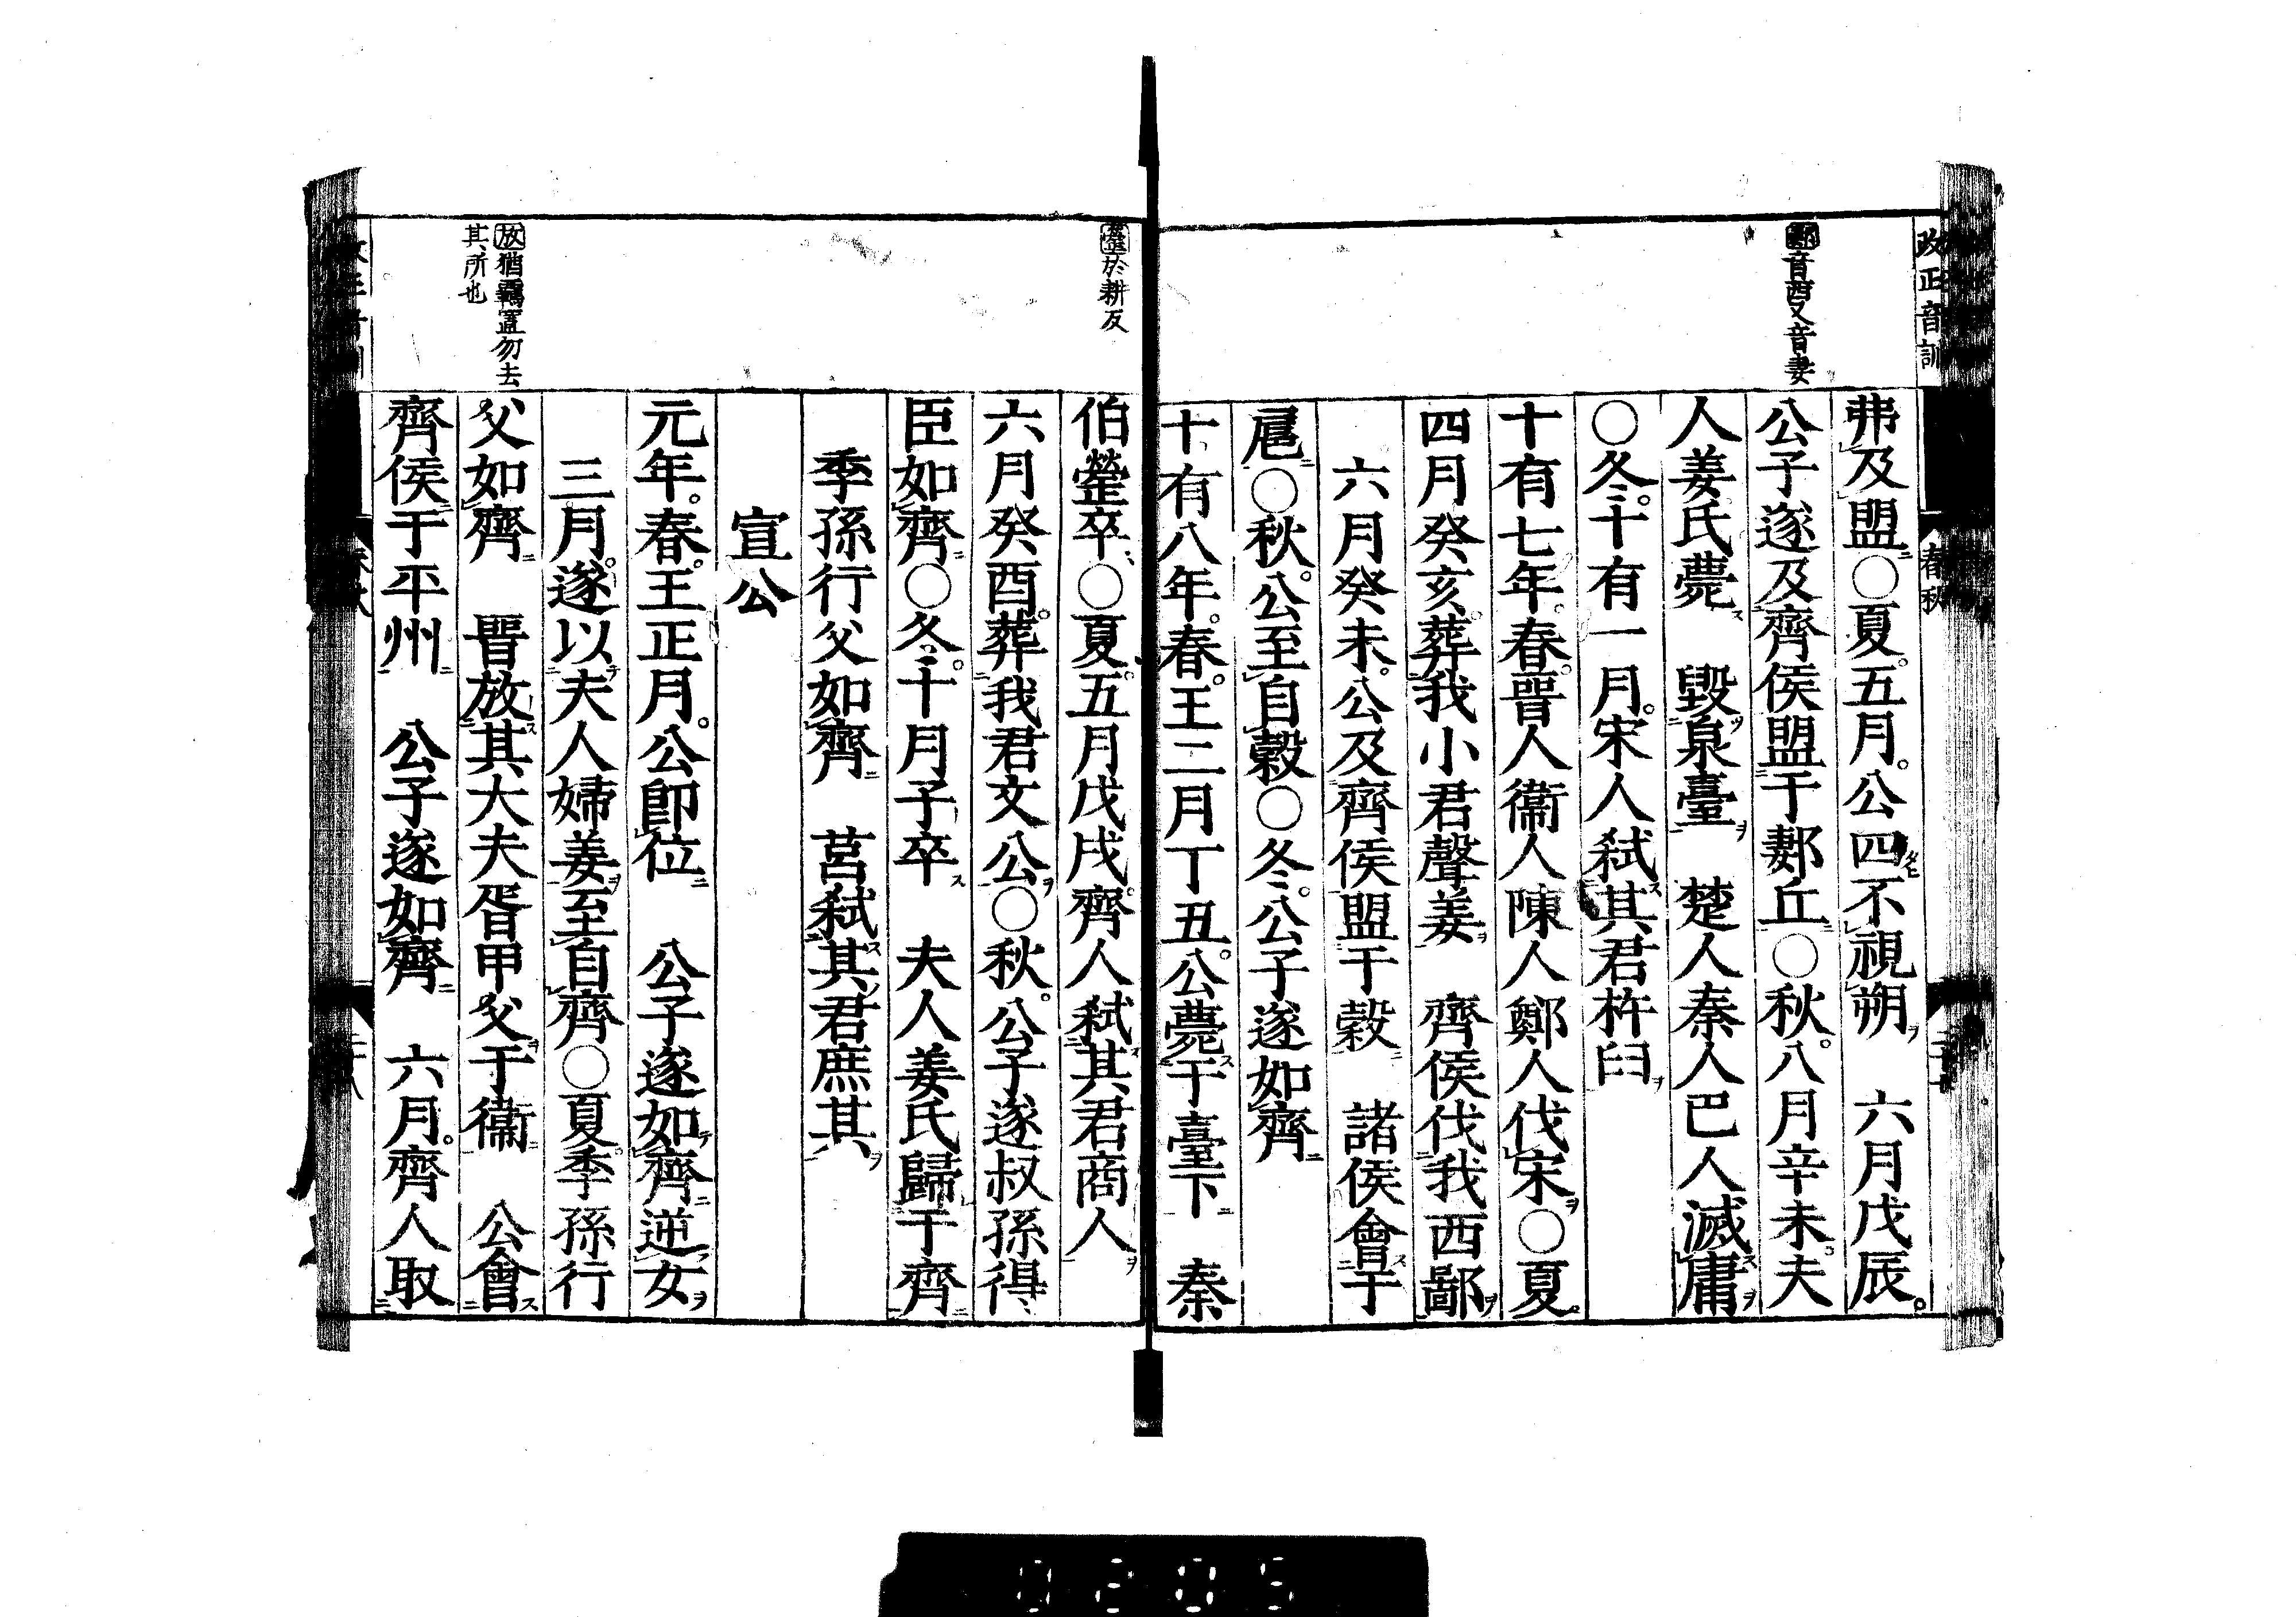 改正音訓
春秋
鄋音西又音妻
弗及盟○夏五月。公四不視朔 六月戊辰。
公子遂及齊侯盟于鄋丘○秋。八月辛未夫
人姜氏薨 毀泉臺 楚人秦人巴人滅庸
○冬。十有一月。宋人弒其君杵臼
十有七年。春。晉人衞人陳人鄭人伐宋○夏。
四月癸亥。葬我小君聲姜 齊侯伐我西鄙
六月癸未。公及齊侯盟于穀 諸侯會于
扈○秋。公至自穀○冬。公子遂如齊
十有八年。春。王二月丁丑。公薨于臺下 秦
罃於耕反
伯罃卒○夏。五月戊戌。齊人弒其君商人
六月癸酉。葬我君文公○秋。公子遂叔孫得
臣如齊○冬。十月子卒 夫人姜氏歸于齊
季孫行父如齊 莒弒其君庶其
宣公
元年。春。王正月。公卽位 公子遂如齊逆女
三月。遂以夫人婦姜至自齊○夏。季孫行
放猶羈置勿去
其所也
父如齊 晉放其大夫胥甲父于衞 公會
齊侯于平州 公子遂如齊 六月。齊人取
0205